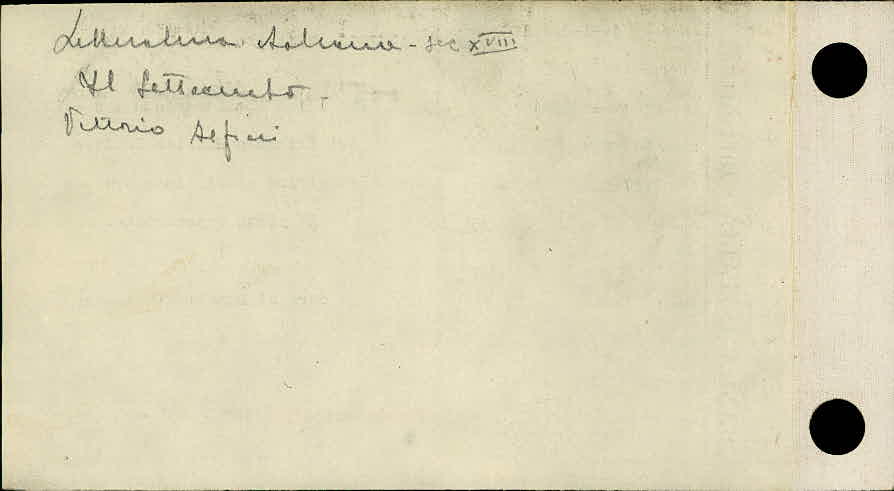 Letteratura Italiana - sec XVIII
Il Settecento -
Vittorio Alfieri